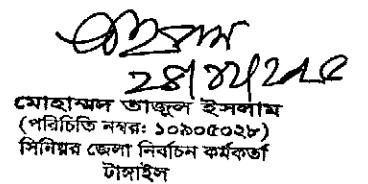 ২৪/১২/২০২৫
মোহাম্মদ তাজুল ইসলাম
(পরিচিতি নম্বর: ১০৯০৫০২৮)
সিনিয়র জেলা নির্বাচন কর্মকর্তা
টাঙ্গাইল